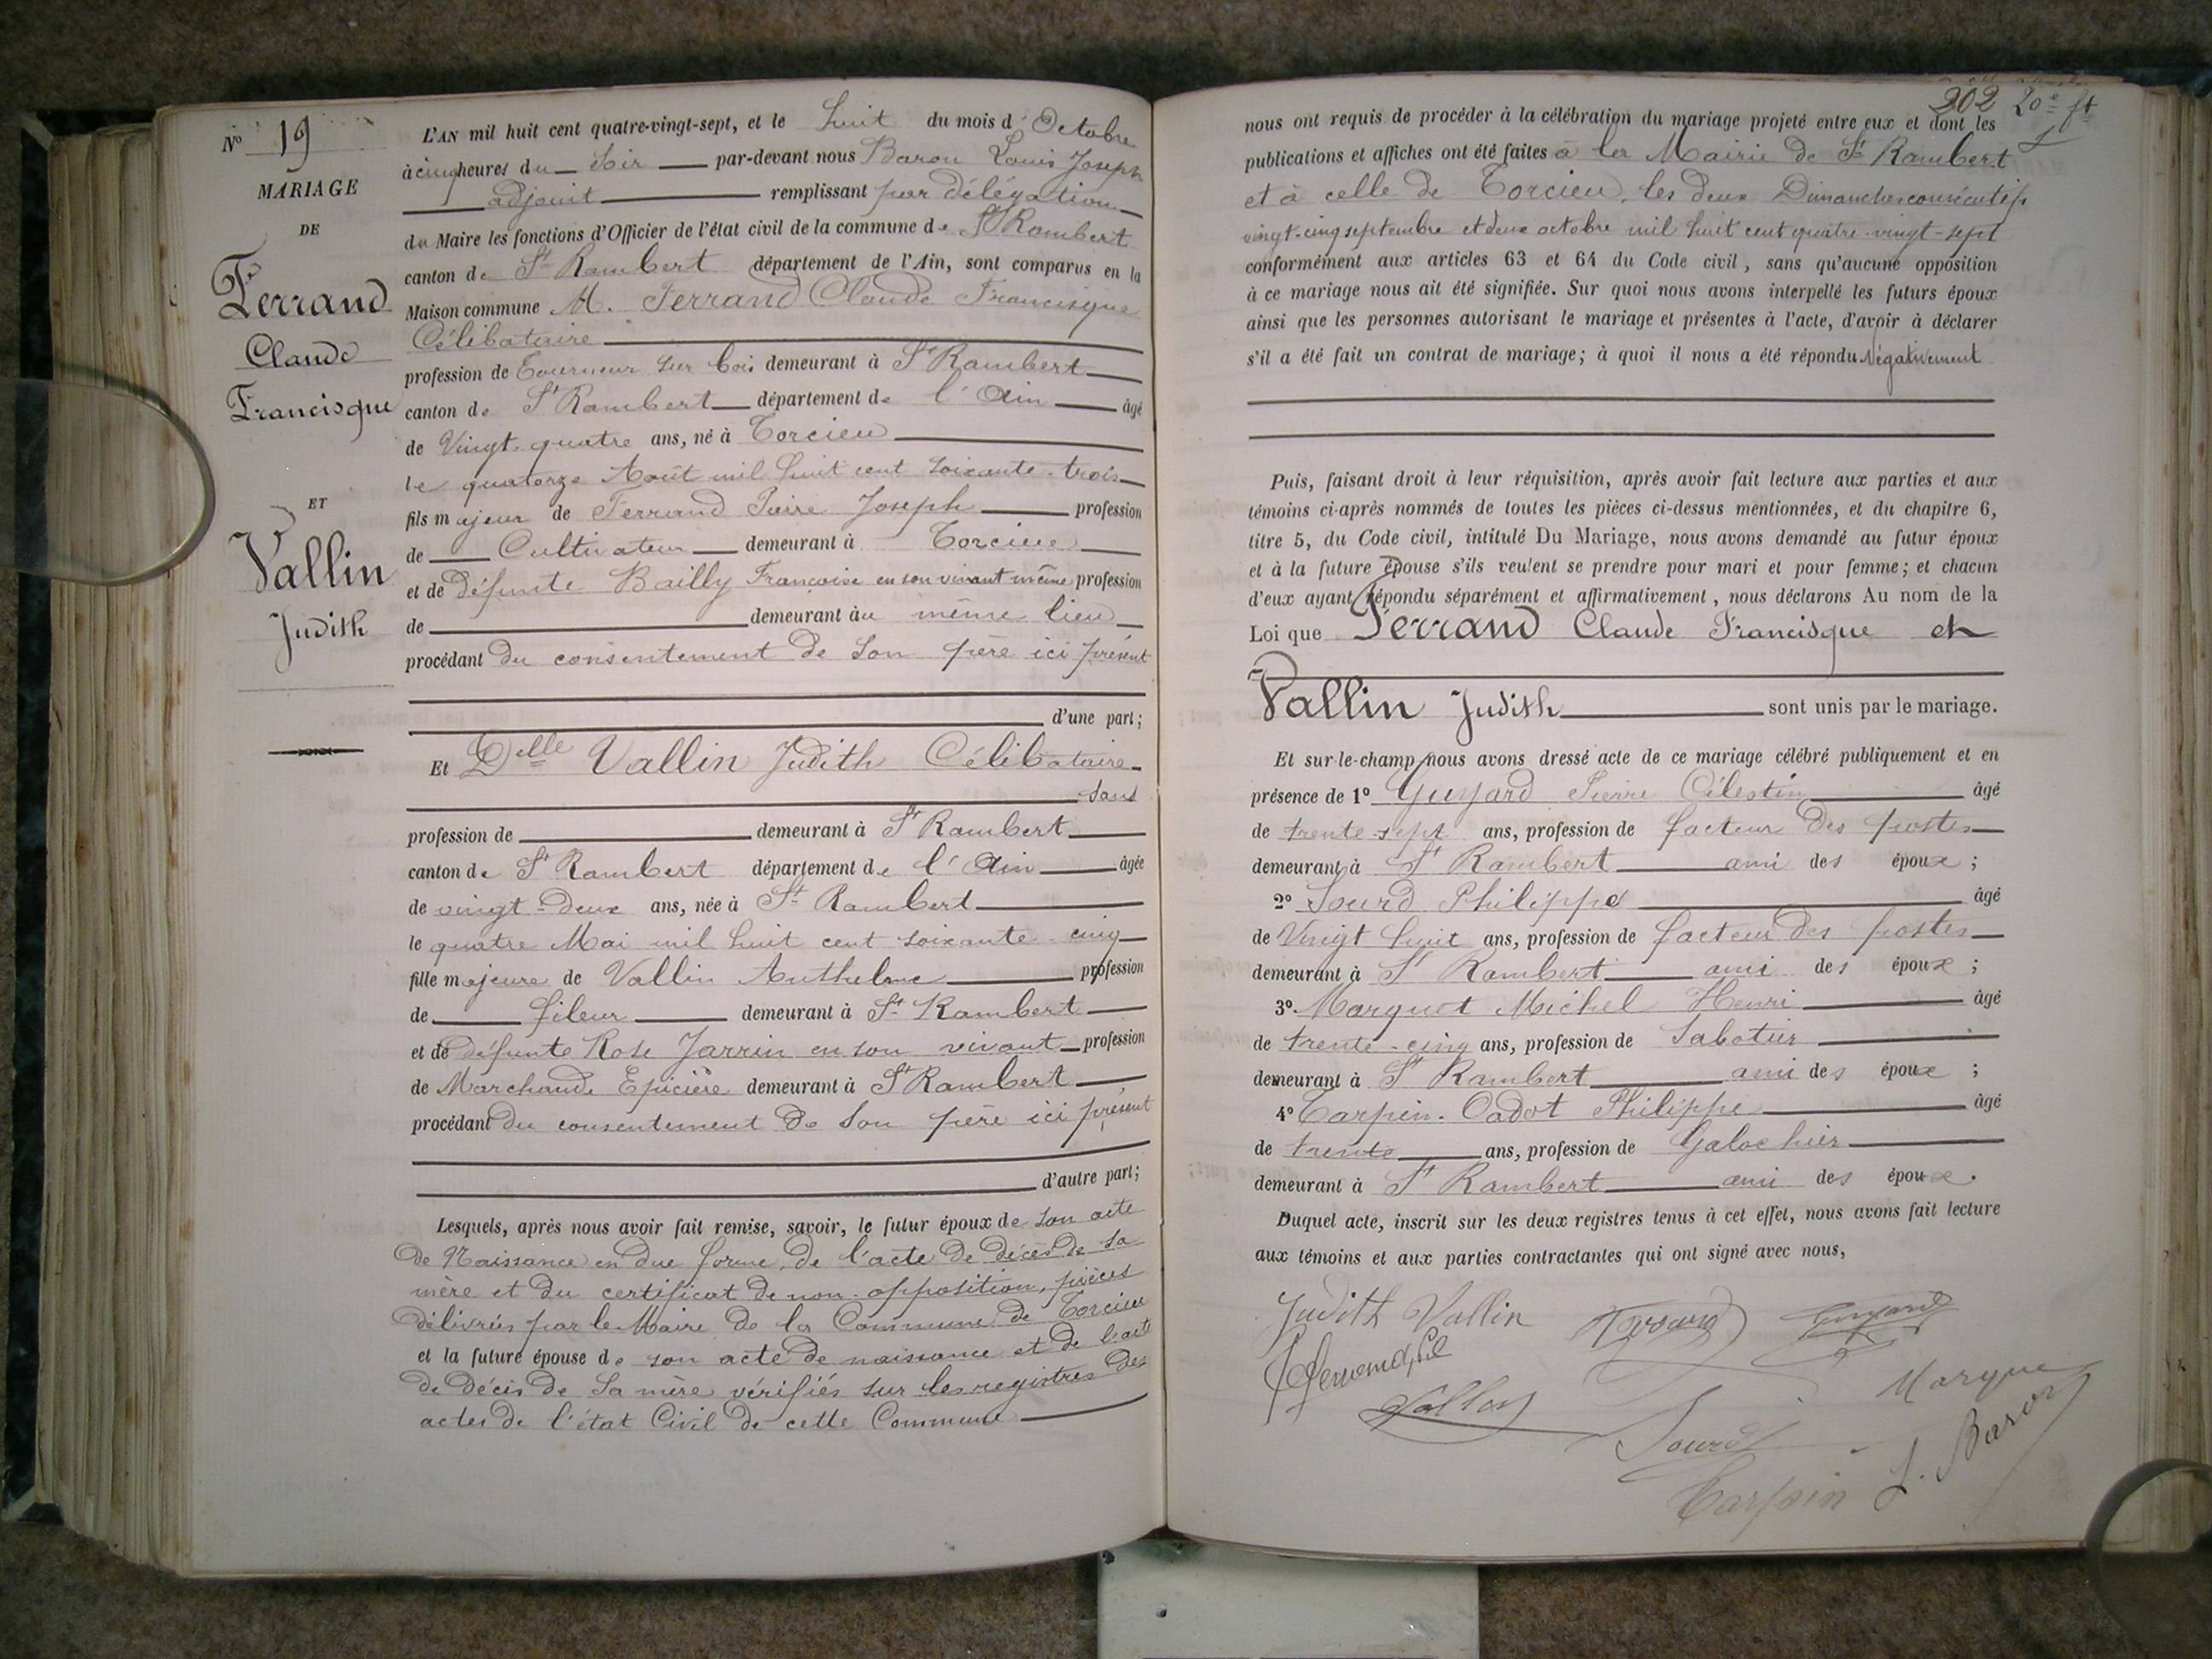 N° 19
MARIAGE
DE
Ferrand
Claude
Francisque
ET
Vallin
Judith
L'AN mil huit cent quatre-vingt-sept, et le huit du mois d'Octobre
à cinq heures du Soir par-devant nous Baron Louis Joseph
adjoint remplissant par délégation
du Maire les fonctions d'Officier de l'état civil de la commune de St Rambert
canton de St Rambert département de l'Ain, sont comparus en la
Maison commune M. Ferrand Claude Francisque
Célibataire
profession de Tourneur sur bois demeurant à St Rambert
canton de St Rambert département de l'Ain âgé
de Vingt-quatre ans, né à Torcieu
le quatorze Août mil huit cent soixante-trois
fils majeur de Ferrand Pierre Joseph profession
de Cultivateur demeurant à Torcieu
et de défunte Bailly Françoise en son vivant même profession
de demeurant au même lieu
procédant du consentement de son père ici présent
d'une part;
Et Delle Vallin Judith Célibataire
sans
profession de demeurant à St Rambert
canton de St Rambert département de l'Ain âgée
de vingt-deux ans, née à St Rambert
le quatre Mai mil huit cent soixante-cinq
fille majeure de Vallin Anthelme profession
de fileur demeurant à St Rambert
et de défunte Rose Jarrin en son vivant profession
de Marchande Epicière demeurant à St Rambert
procédant du consentement de son père ici présent
d'autre part;
Lesquels, après nous avoir fait remise, savoir, le futur époux de son acte
de Naissance en due forme, de l'acte de décès de sa
mère et du certificat de non-opposition, pièces
délivrées par le Maire de la Commune de Torcieu
et la future épouse de son acte de naissance et de l'acte
de décès de sa mère vérifiés sur les registres des
actes de l'état Civil de cette Commune
202 20e ft
nous ont requis de procéder à la célébration du mariage projeté entre eux et dont les
publications et affiches ont été faites à la Mairie de St Rambert
et à celle de Torcieu, les deux Dimanches consécutifs
vingt-cinq septembre et deux octobre mil huit cent quatre-vingt-sept
conformément aux articles 63 et 64 du Code civil, sans qu'aucune opposition
à ce mariage nous ait été signifiée. Sur quoi nous avons interpellé les futurs époux
ainsi que les personnes autorisant le mariage et présentes à l'acte, d'avoir à déclarer
s'il a été fait un contrat de mariage; à quoi il nous a été répondu Négativement
Puis, faisant droit à leur réquisition, après avoir fait lecture aux parties et aux
témoins ci-après nommés de toutes les pièces ci-dessus mentionnées, et du chapitre 6,
titre 5, du Code civil, intitulé Du Mariage, nous avons demandé au futur époux
et à la future épouse s'ils veulent se prendre pour mari et pour femme; et chacun
d'eux ayant répondu séparément et affirmativement, nous déclarons Au nom de la
Loi que Ferrand Claude Francisque et
Vallin Judith sont unis par le mariage.
Et sur-le-champ nous avons dressé acte de ce mariage célébré publiquement et en
présence de 1° Guyard Pierre Célestin âgé
de trente-sept ans, profession de facteur des postes
demeurant à St Rambert ami des époux ;
2° Sourd Philippe âgé
de Vingt huit ans, profession de facteur des postes
demeurant à St Rambert ami des époux ;
3° Marquet Michel Henri âgé
de trente-cinq ans, profession de Sabotier
demeurant à St Rambert ami des époux ;
4° Carpin-Cadot Philippe âgé
de trente ans, profession de Galochier
demeurant à St Rambert ami des époux.
Duquel acte, inscrit sur les deux registres tenus à cet effet, nous avons fait lecture
aux témoins et aux parties contractantes qui ont signé avec nous,
Judith Vallin Guyard
Sourd
Carpin L. Baron